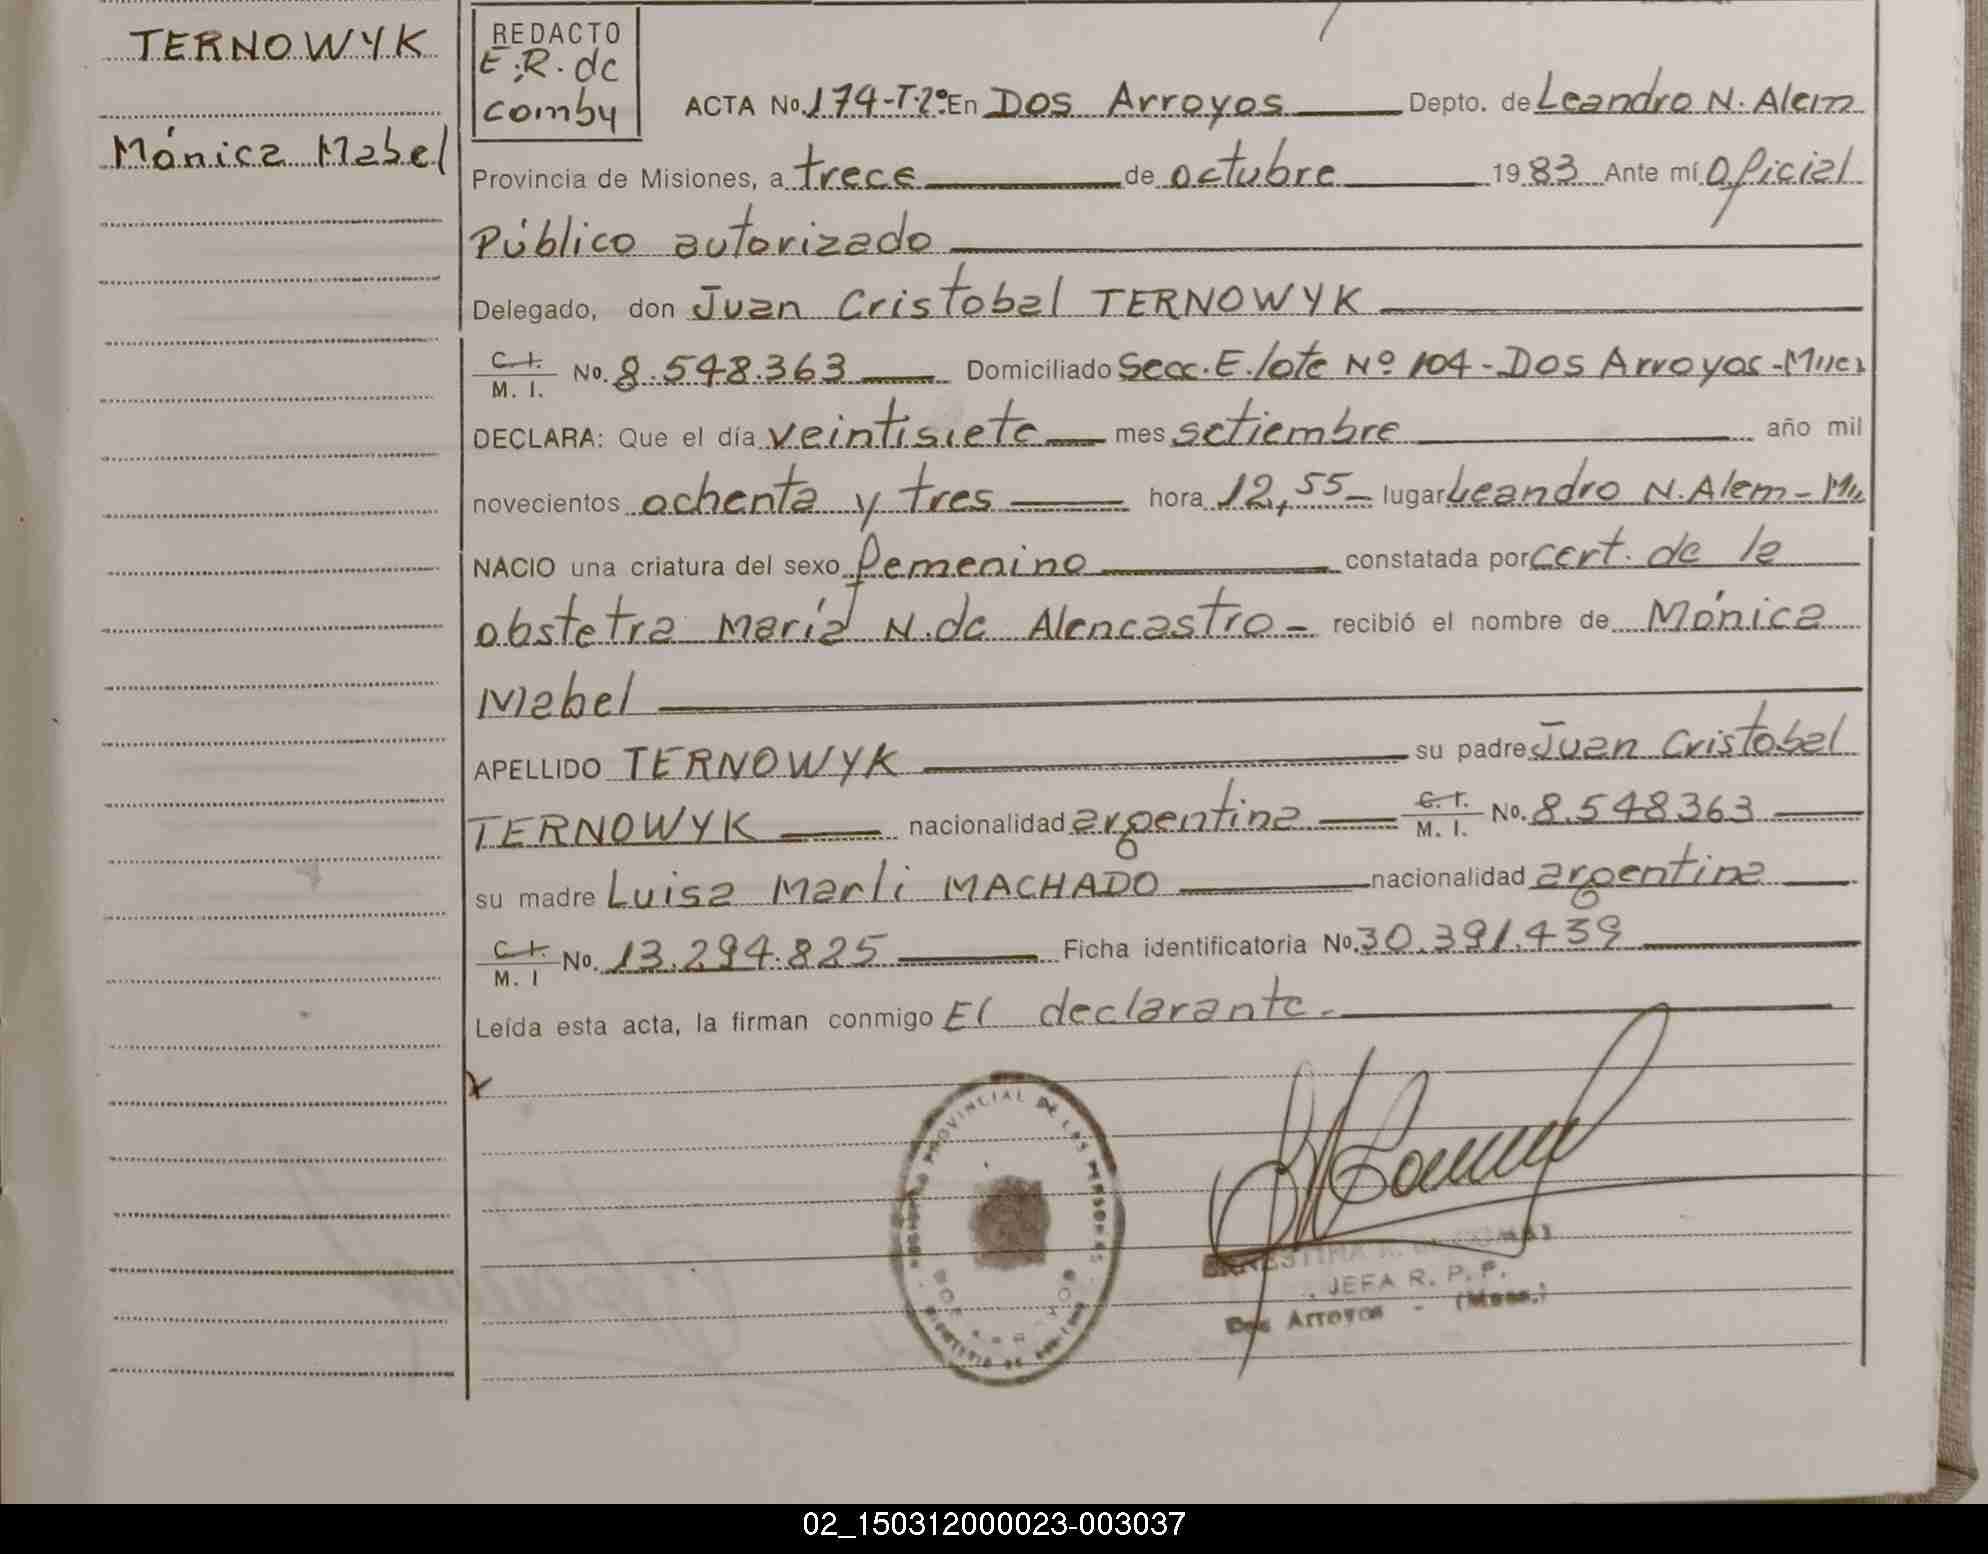 TERNOWYK
Mónica Mabel
REDACTO
E.R. de
Comby
ACTA No. 174-T.2º En Dos Arroyos Depto. de Leandro N. Alem
Provincia de Misiones, a trece de octubre 1983 Ante mí Oficial
Público autorizado
Delegado, don Juan Cristobal TERNOWYK
C. I. / M. I. No. 8.548.363 Domiciliado Secc. E. lote Nº 104 - Dos Arroyos -
DECLARA: Que el día veintisiete mes setiembre año mil
novecientos ochenta y tres hora 12,55 lugar Leandro N. Alem -
NACIO una criatura del sexo femenino constatada por cert. de la
obstetra María N. de Alencastro - recibió el nombre de Mónica
Mabel
APELLIDO TERNOWYK su padre Juan Cristobal
TERNOWYK nacionalidad argentina C. I. / M. I. No. 8.548363
su madre Luisa Marli MACHADO nacionalidad argentina
C. I. / M. I No. 13.294.825 Ficha identificatoria No. 30.391.439
Leída esta acta, la firman conmigo El declarante.
PROVINCIAL DE LAS PERSONAS
JEFA R. P. P.
Dos Arroyos - (Mnes.)
02_150312000023-003037